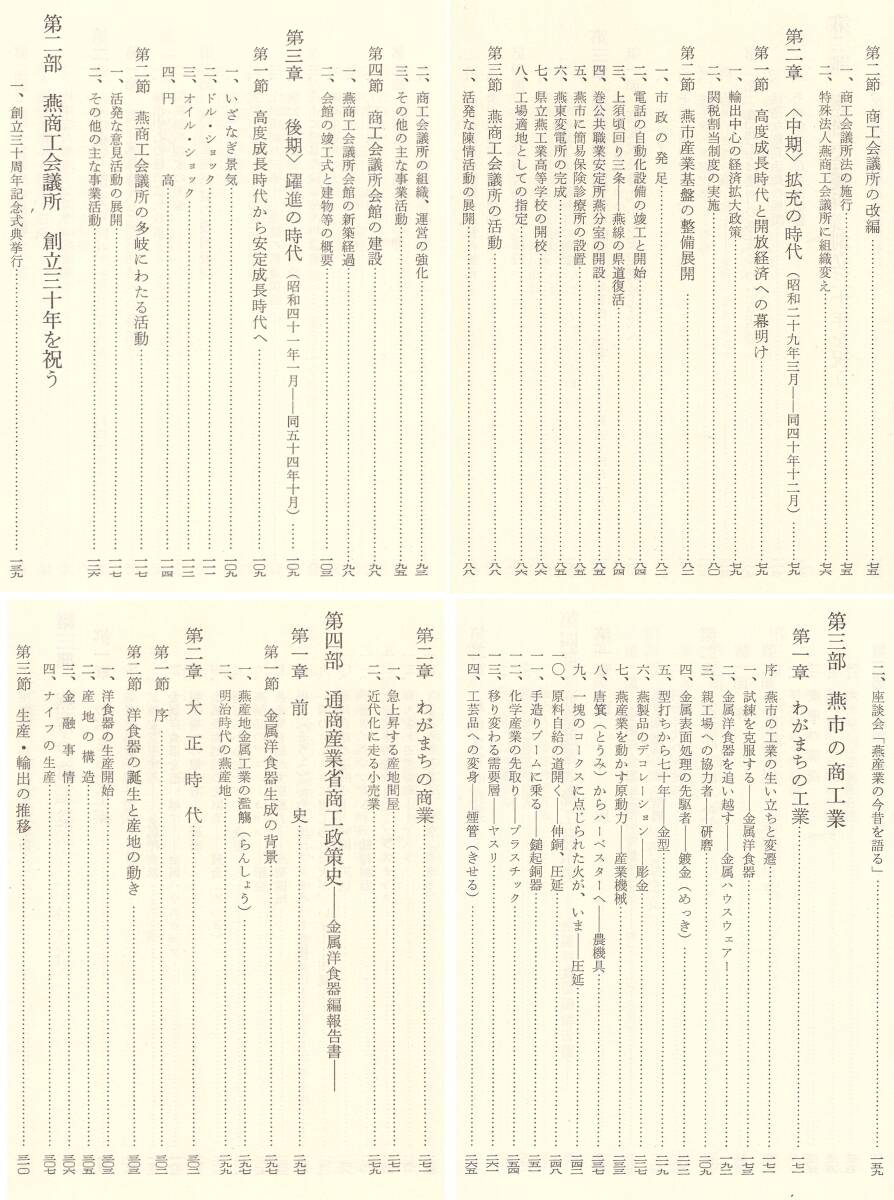 第二節 商工会議所の改編……七五
一、商工会議所法の施行……七五
二、特殊法人燕商工会議所に組織変え……七六
第二章 〈中期〉拡充の時代(昭和二十九年三月――同四十年十二月)……七九
第一節 高度成長時代と開放経済への幕明け……七九
一、輸出中心の経済拡大政策……七九
二、関税割当制度の実施……八〇
第二節 燕市産業基盤の整備展開……八二
一、市政の発足……八二
二、電話の自動化設備の竣工と開始……八四
三、上須頃回り三条――燕線の県道復活……八四
四、巻公共職業安定所燕分室の開設……八五
五、燕市に簡易保険診療所の設置……八五
六、燕東変電所の完成……八五
七、県立燕工業高等学校の開校……八六
八、工場適地としての指定……八六
第三節 燕商工会議所の活動……八八
一、活発な陳情活動の展開……八八
二、商工会議所の組織、運営の強化……九三
三、その他の主な事業活動……九五
第四節 商工会議所会館の建設……九八
一、燕商工会議所会館の新築経過……九八
二、会館の竣工式と建物等の概要……一〇三
第三章 後期〉躍進の時代(昭和四十一年一月――同五十四年十月)……一〇九
第一節 高度成長時代から安定成長時代へ……一〇九
一、いざなぎ景気……一〇九
二、ドル・ショック……一一一
三、オイル・ショック……一一三
四、円高……一一四
第二節 燕商工会議所の多岐にわたる活動……一一七
一、活発な意見活動の展開……一一七
二、その他の主な事業活動……一二六
第二部 燕商工会議所 創立三十年を祝う
一、創立三十周年記念式典挙行……一三九
二、座談会「燕産業の今昔を語る」……一五九
第三部 燕市の商工業
第一章 わがまちの工業……一七一
序 燕市の工業の生い立ちと変遷……一七一
一、試練を克服する――金属洋食器……一七三
二、金属洋食器を追い越す――金属ハウスウェアー……一九二
三、親工場への協力者――研磨……二〇九
四、金属表面処理の先駆者――鍍金(めっき)……二一二
五、型打ちから七十年――金型……二一九
六、燕製品のデコレーション――彫金……二二七
七、燕産業を動かす原動力 産業機械……二三三
八、唐箕(とうみ)からハーベスターへ――農機具……二三七
九、一塊のコークスに点じられた火が、いま――圧延……二四二
一〇、原料自給の道開く――伸銅、圧延……二四八
一一、手造りブームに乗る――鎚起銅器……二五一
一二、化学産業の先取り――プラスチック……二五四
一三、移り変わる需要層――ヤスリ……二六一
一四、工芸品への変身――煙管(きせる)……二六五
第二章 わがまちの商業……二七一
一、急上昇する産地間屋……二七一
二、近代化に走る小売業……二七九
第四部 通商産業省商工政策史――金属洋食器編報告書――
第一章 前史……二九七
第一節 金属洋食器生成の背景……二九七
一、燕産地金属工業の濫觴(らんしょう)……二九七
二、明治時代の燕産地……二九九
第二章 大正時代……三〇二
第一節 序……三〇二
第二節 洋食器の誕生と産地の動き……三〇三
一、洋食器の生産開始……三〇三
二、産地の構造……三〇五
三、金融事情……三〇六
四、ナイフの生産……三〇七
第三節 生産・輸出の推移……三一〇